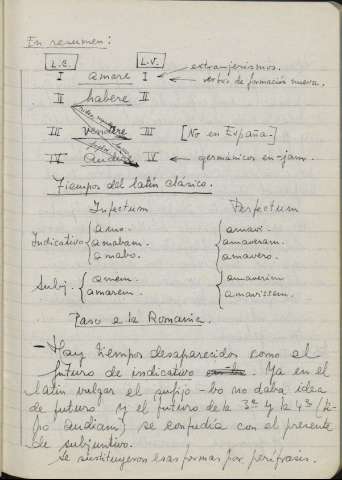 En resumen:
L.C. L.V.
I amare I ← extranjerismos.
← verbos de formación nueva.
II habere II
III vendere III [No en España]
IV Audire IV ← germánicos en -jam.
Tiempos del latín clásico.
Infectum Perfectum
Indicativo { amo. { amavi.
amabam. amaveram.
amabo. amavero.
Subj. { amem. { amaverim
amarem. amavissem.
Paso a la Romania.
- Hay tiempos desaparecidos como el
futuro de indicativo. Ya en el
latín vulgar el sufijo -bo no daba idea
de futuro y el futuro de la 3ª y la 4ª (ti-
po audiam) se confundía con el presente
de subjuntivo.
Se sustituyeron esas formas por perífrasis.